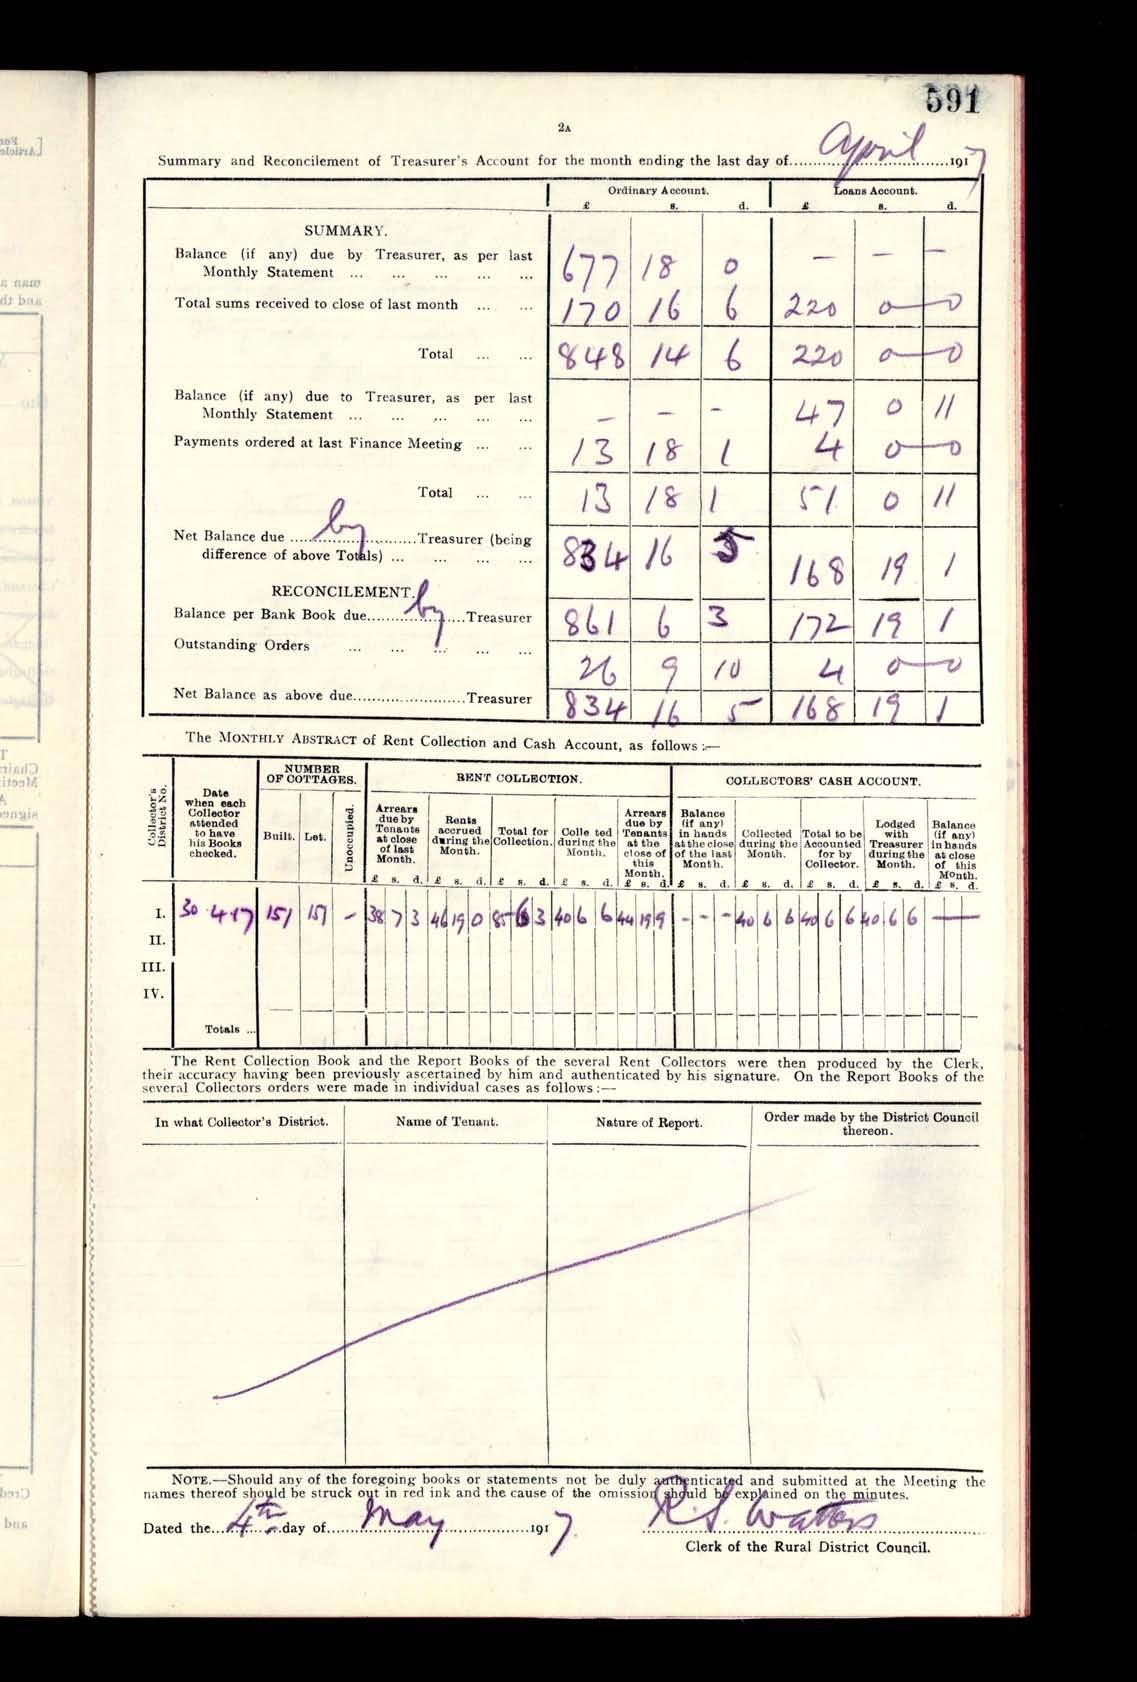 591
2A
Summary and Reconcilement of Treasurer's Account for the month ending the last day of April 1917
Ordinary Account. Loans Account.
£ s. d. £ s. d.
SUMMARY.
Balance (if any) due by Treasurer, as per last
Monthly Statement ... ... ... ... ... 677 18 0 — — —
Total sums received to close of last month ... ... 170 16 6 220 0 — 0
Total ... ... 848 14 6 220 0 — 0
Balance (if any) due to Treasurer, as per last
Monthly Statement ... ... ... ... ... — — - 47 0 11
Payments ordered at last Finance Meeting ... ... 13 18 1 4 0 — 0
Total ... ... 13 18 1 51 0 11
Net Balance due by Treasurer (being
difference of above Totals) ... ... ... ... 834 16 5 168 19 1
RECONCILEMENT.
Balance per Bank Book due by Treasurer 861 6 3 172 19 1
Outstanding Orders ... ... ... ... ... 26 9 10 4 0 — 0
Net Balance as above due Treasurer 834 16 5 168 19 1
The MONTHLY ABSTRACT of Rent Collection and Cash Account, as follows :—
Collector's District No.
Date when each Collector attended to have his Books checked.
NUMBER OF COTTAGES.
Built. Let. Unoccupied.
RENT COLLECTION.
Arrears due by Tenants at close of last Month. £ s. d.
Rents accrued during the Month. £ s. d.
Total for Collection. £ s. d.
Colle ted during the Month. £ s. d.
Arrears due by Tenants at the close of this Month. £ s. d.
COLLECTORS' CASH ACCOUNT.
Balance (if any) in hands at the close of the last Month. £ s. d.
Collected during the Month. £ s. d.
Total to be Accounted for by Collector. £ s. d.
Lodged with Treasurer during the Month. £ s. d.
Balance (if any) in hands at close of this Month. £ s. d.
I. 30 4 17 151 151 — 38 7 3 46 19 0 85 6 3 40 6 6 44 19 9 - - - 40 6 6 40 6 6 40 6 6 —
II.
III.
IV.
Totals ...
The Rent Collection Book and the Report Books of the several Rent Collectors were then produced by the Clerk,
their accuracy having been previously ascertained by him and authenticated by his signature. On the Report Books of the
several Collectors orders were made in individual cases as follows :—
In what Collector's District. Name of Tenant. Nature of Report. Order made by the District Council thereon.
NOTE.—Should any of the foregoing books or statements not be duly authenticated and submitted at the Meeting the
names thereof should be struck out in red ink and the cause of the omission should be explained on the minutes.
Dated the 4th day of May 1917. R. S. Watters
Clerk of the Rural District Council.